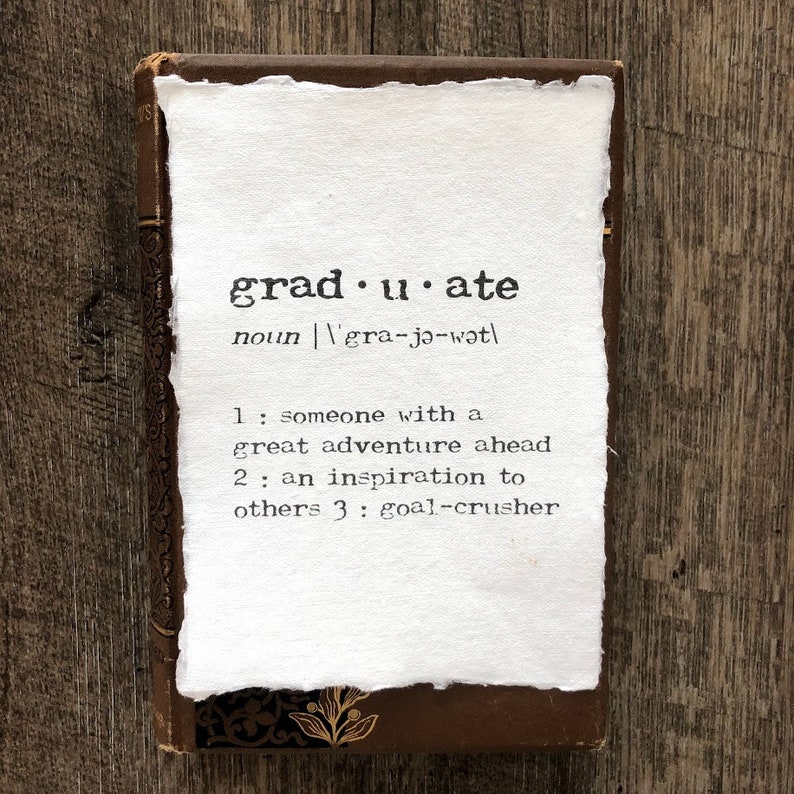 grad · u · ate
noun | \ˈgra-jə-wət\
1 : someone with a
great adventure ahead
2 : an inspiration to
others 3 : goal-crusher